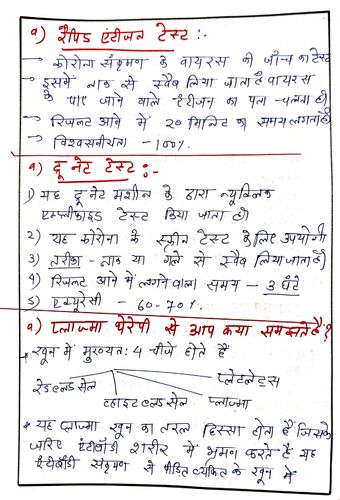 १) रैपिड एंटीजन टेस्ट :-
→ कोरोना संक्रमण के वायरस की जाँच का टेस्ट
→ इसमें नाक से स्वैब लिया जाता है वायरस
के पाए जाने वाले एंटीजन का पता चलता है।
→ रिजल्ट आने में २० मिनिट का समय लगता है।
→ विश्वसनीयता - 100%
१) ट्रू नेट टेस्ट :-
1) यह ट्रू नेट मशीन के द्वारा न्यूक्लिक
एम्प्लीफाइड टेस्ट किया जाता है।
2) यह कोरोना के स्क्रीन टेस्ट के लिए उपयोगी
3) तरीका - नाक या गले से स्वैब लिया जाता है।
4) रिजल्ट आने में लगने वाला समय - 3 घंटे
5) एक्यूरेसी - 60-70%
१) प्लाज्मा थेरेपी से आप क्या समझते हैं?
* खून में मुख्यत: 4 चीजें होते हैं
रेड ब्लड सेल व्हाइट ब्लड सेल प्लाज्मा प्लेटलेट्स
* यह प्लाज्मा खून का तरल हिस्सा होता है जिसके
जरिए एंटीबॉडी शरीर में भ्रमण करते हैं यह
एंटीबॉडी संक्रमण से पीड़ित व्यक्ति के खून में